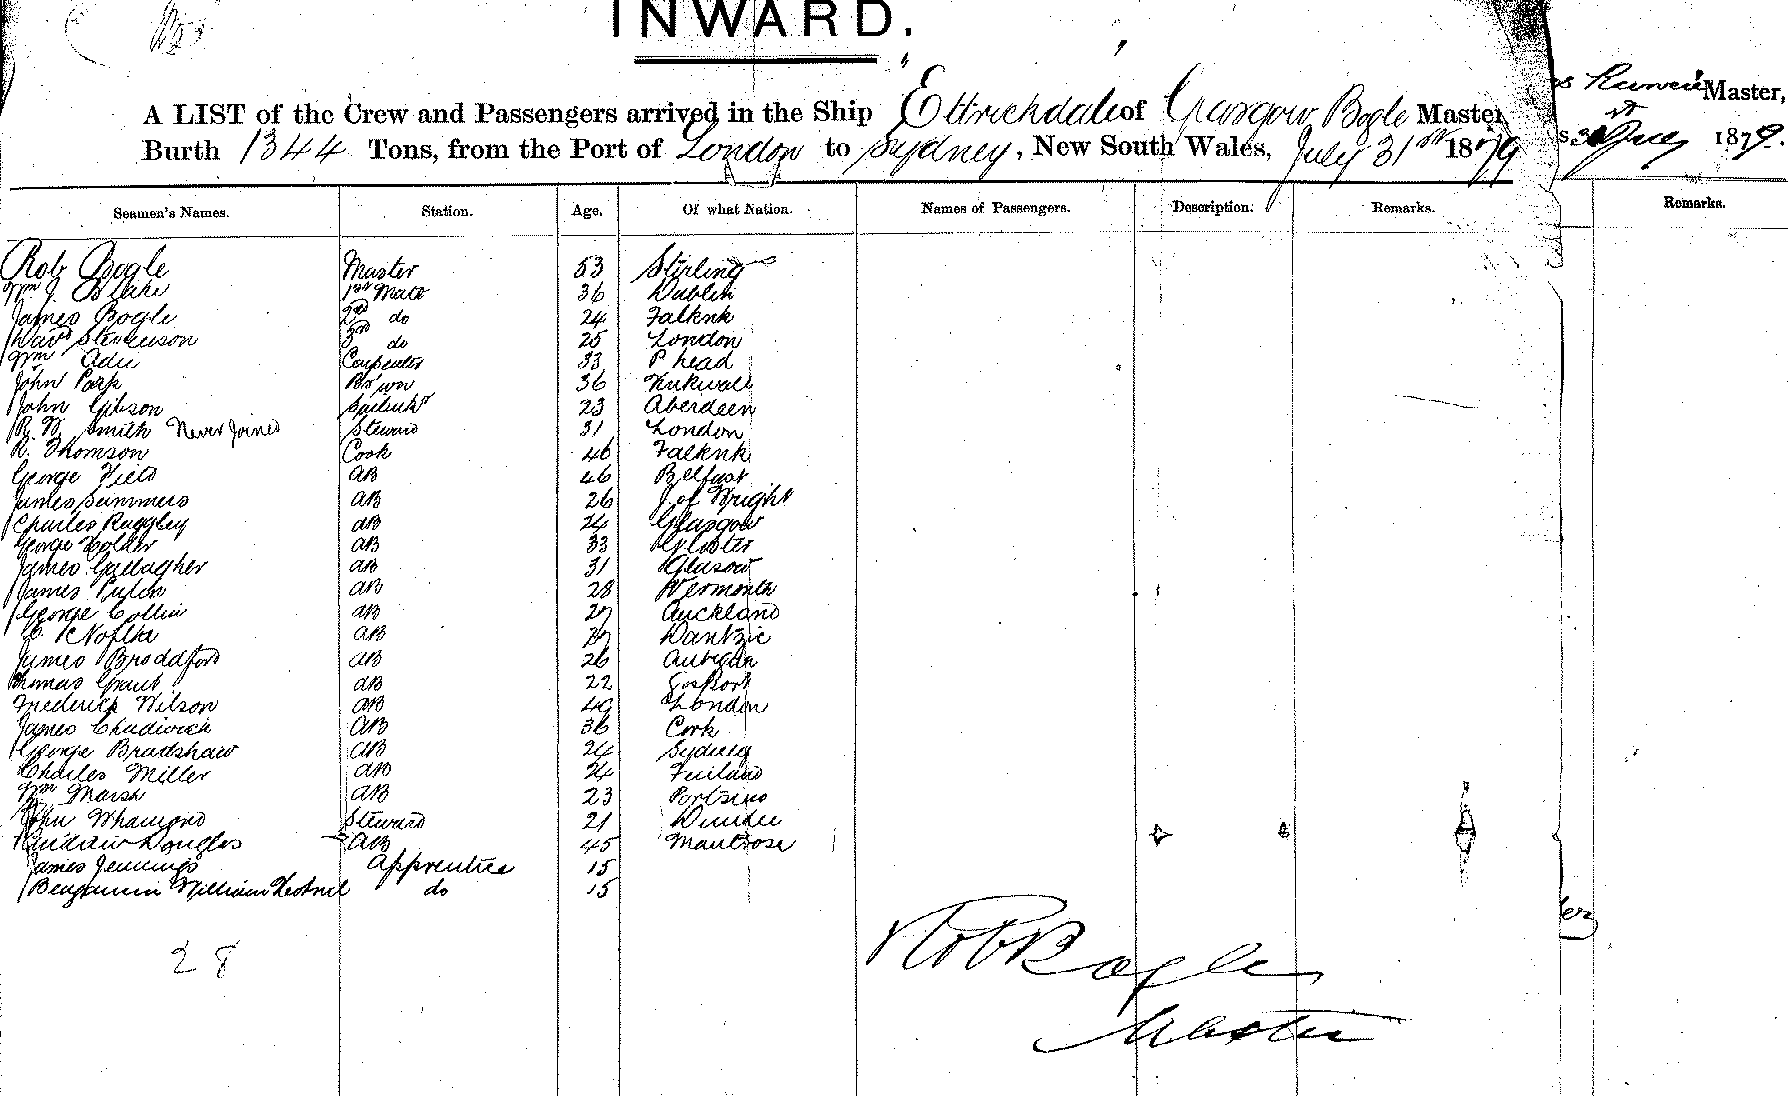 INWARD.
A LIST of the Crew and Passengers arrived in the Ship Ettrickdale of Glasgow Bogle Master
Burth 1344 Tons, from the Port of London to Sydney, New South Wales, July 31st 1879
Master,
1879.
Seamen's Names. Station. Age. Of what Nation. Names of Passengers. Description. Remarks. Remarks.
Rob Bogle Master 53 Stirling
Wm J. Blake 1st Mate 36 Dublin
James Bogle 2nd do 24 Falkrk
David Stenhuson 3rd do 25 London
Wm Adie Carpenter 33 P head
John Carpenter 36 Kirkwall
John Gibson Sailmkr 23 Aberdeen
R. W. Smith Never Joined Steward 31 London
R. Thomson Cook 46 Falkrk
George Field AB 46 Belfast
James Summers AB 26 I of Wright
Charles Ruggley AB 24 Glasgow
George Holder AB 33 Gloster
James Gallagher AB 31 Glasow
James AB 28 Wermonth
George Collin AB 27 Auckland
AB 27 Dantzic
James Braddford AB 26
Thomas Grant AB 22 Gosport
Frederick Wilson AB 49 London
James Chadwick AB 36 Cork
George Bradshaw AB 24 Sydney
Charles Miller AB 24 Finland
Wm Marsh AB 23
John Whamond Steward 21 Dundee
Douglas AB 45 Mantrose
James Jennings Apprentice 15
Benjamin William do 15
28
Rob Bogle
Master